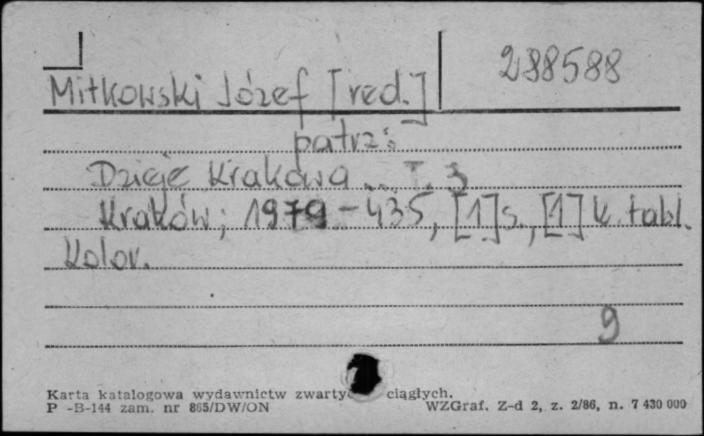 288588
Mitkowski Józef [red.]
patrz:
Dzieje Krakowa ... T. 3
Kraków; 1979 – 435, [1] s., [1] k. tabl.
kolor.
9
Karta katalogowa wydawnictw zwarty ciągłych.
P -B-144 zam. nr 865/DW/ON WZGraf. Z-d 2, z. 2/86, n. 7 430 000